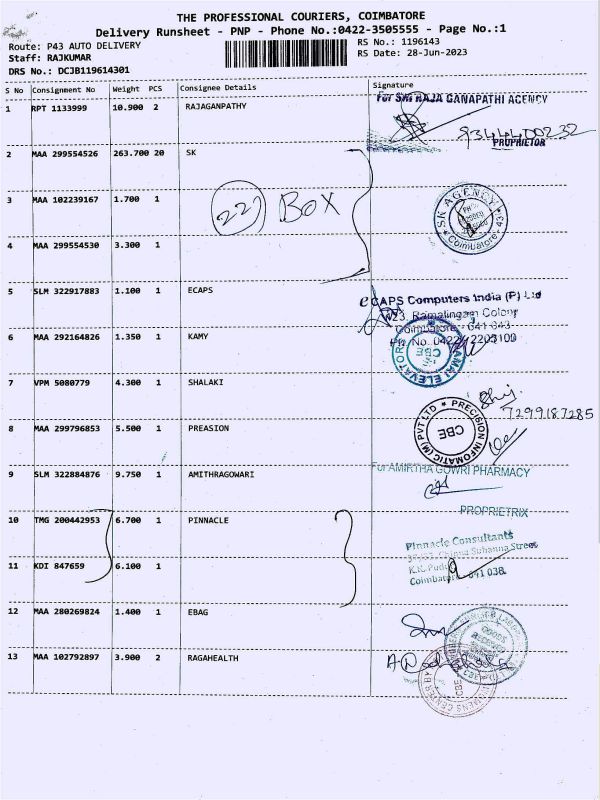 THE PROFESSIONAL COURIERS, COIMBATORE
Delivery Runsheet - PNP - Phone No.:0422-3505555 - Page No.:1
Route: P43 AUTO DELIVERY
RS No.: 1196143
Staff: RAJKUMAR
RS Date: 28-Jun-2023
DRS No.: DCJB119614301
S No Consignment No Weight PCS Consignee Details Signature
1 RPT 1133999 10.900 2 RAJAGANPATHY
For SRI RAJA GANAPATHI AGENCY
9344400232
PROPRIETOR
2 MAA 299554526 263.700 20 SK
3 MAA 102239167 1.700 1
22) BOX
SK AGENCY
Coimbatore - 43
4 MAA 299554530 3.300 1
5 SLM 322917883 1.100 1 ECAPS
eCAPS Computers India (P) Ltd
Ramalingam Colony
Coimbatore - 641 043
Ph No. 0422
6 MAA 292164826 1.350 1 KAMY
ELEVATOR
CBE
7 VPM 5080779 4.300 1 SHALAKI
7299187285
8 MAA 299796853 5.500 1 PREASION
PRECISION INFOMATIC (M) PVT LTD
CBE
9 SLM 322884876 9.750 1 AMITHRAGOWARI
For AMIRTHA GOWRI PHARMACY
PROPRIETRIX
10 TMG 200442953 6.700 1 PINNACLE
Pinnacle Consultants
Street
11 KDI 847659 6.100 1
K.K. Pudur
Coimbatore 641 038.
12 MAA 280269824 1.400 1 EBAG
GOODS
13 MAA 102792897 3.900 2 RAGAHEALTH
CBE